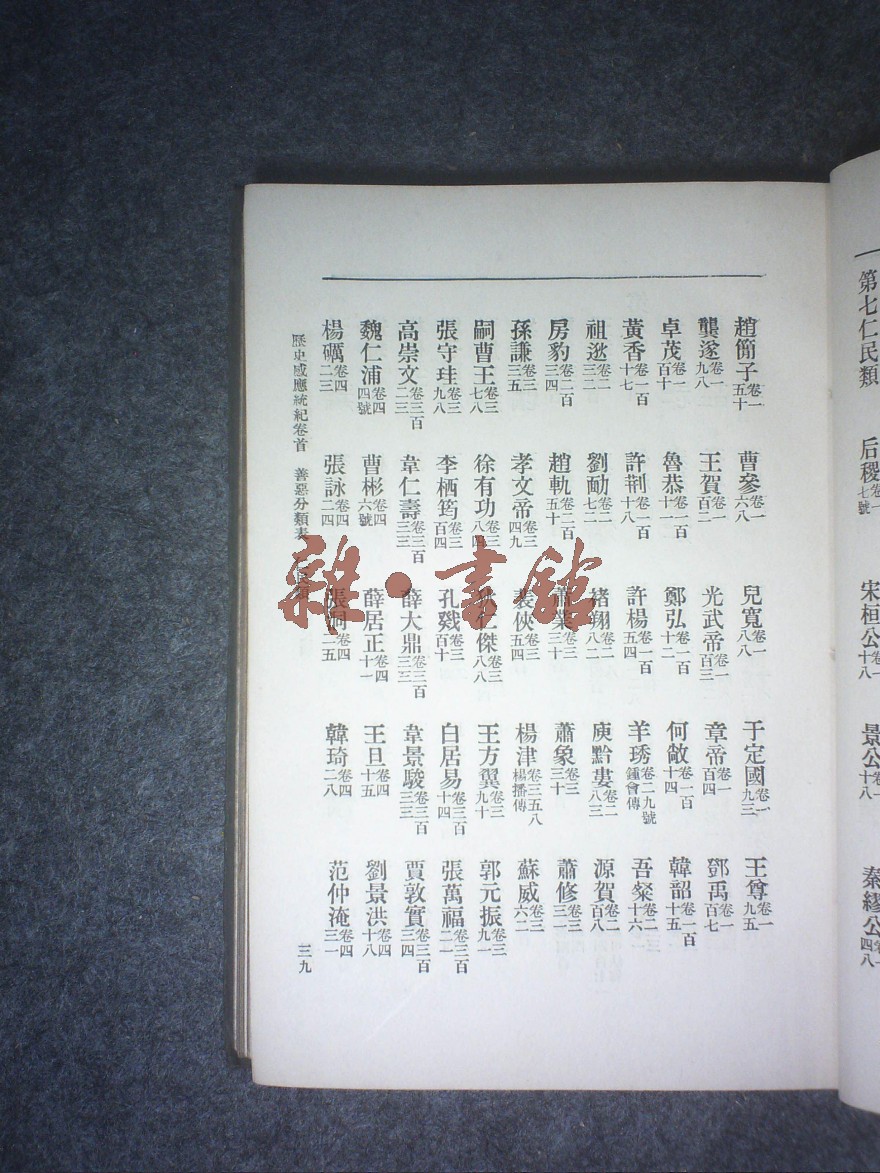 第七仁民類 后稷卷一七號 宋桓公卷一十八 景公卷一十八 秦繆公卷一四八
趙簡子卷一五十 曹參卷一六八 兒寬卷一八八 于定國卷一九三 王尊卷一九五
龔遂卷一九八 王賀卷一百二 光武帝卷一百三 章帝卷一百四 鄧禹卷一百七
卓茂卷一百十 魯恭卷一百十一 鄭弘卷一百十二 何敞卷一百十四 韓韶卷一百十五
黃香卷一百十七 許荆卷一百十八 許楊卷一百五四 羊琇卷二九號鍾會傳 吾粲卷二十六
祖逖卷二三二 劉勔卷二七二 褚翔卷二八二 庾黔婁卷二八三 源賀卷二百八
房豹卷二百三四 趙軌卷二百五十 蕭業卷三三十 蕭象卷三三十 蕭修卷三三一
孫謙卷三三五 孝文帝卷三四九 裴俠卷三五四 楊津卷三五八楊播傳 蘇威卷三六二
嗣曹王卷三七八 徐有功卷三八四 仁傑卷三八八 王方翼卷三九十 郭元振卷三九一
張守珪卷三九八 李栖筠卷三百四 孔戣卷三百十 白居易卷三百十四 張萬福卷三百二一
高崇文卷三百二三 韋仁壽卷三百三三 薛大鼎卷三百三三 韋景駿卷三百三三 賈敦實卷三百三四
魏仁浦卷四四號 曹彬卷四六號 薛居正卷四十一 王旦卷四十五 劉景洪卷四十八
楊礪卷四二三 張詠卷四二四 張洞卷四二五 韓琦卷四二八 范仲淹卷四三一
歷史感應統紀卷首 善惡分類表 三九
雜·書館